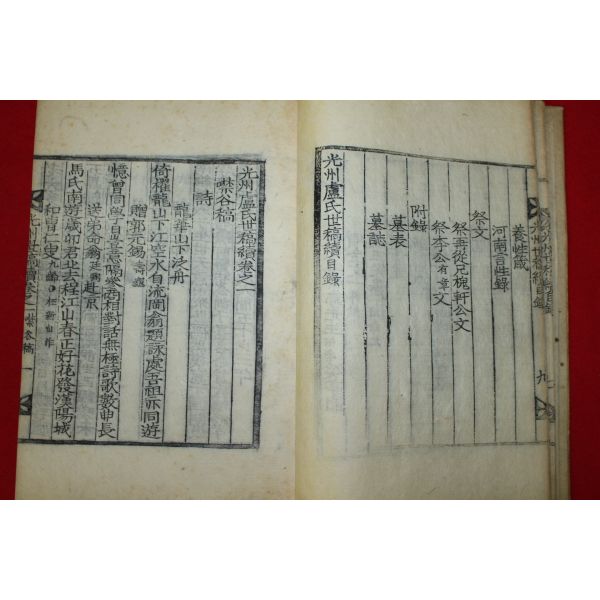 養性箴
河南言性錄
祭文
祭再從兄槐軒公文
祭李公有章文
附錄
墓表
墓誌
光州盧氏世稿續目錄
九
光州盧氏世稿續卷之一
谷稿
詩
龍華山下泛舟
倚櫂龍山下江空水自流岡翁題詠處吾祖亦同遊
贈郭元錫壽
憶曾同學自生悲隔 相對話無極詩歌數 長
送弟命翁 赴京
馬氏南遊歲卯君北去程江山春正好花發漢陽城
和曺仁叟九
卷之一 谷稿 一